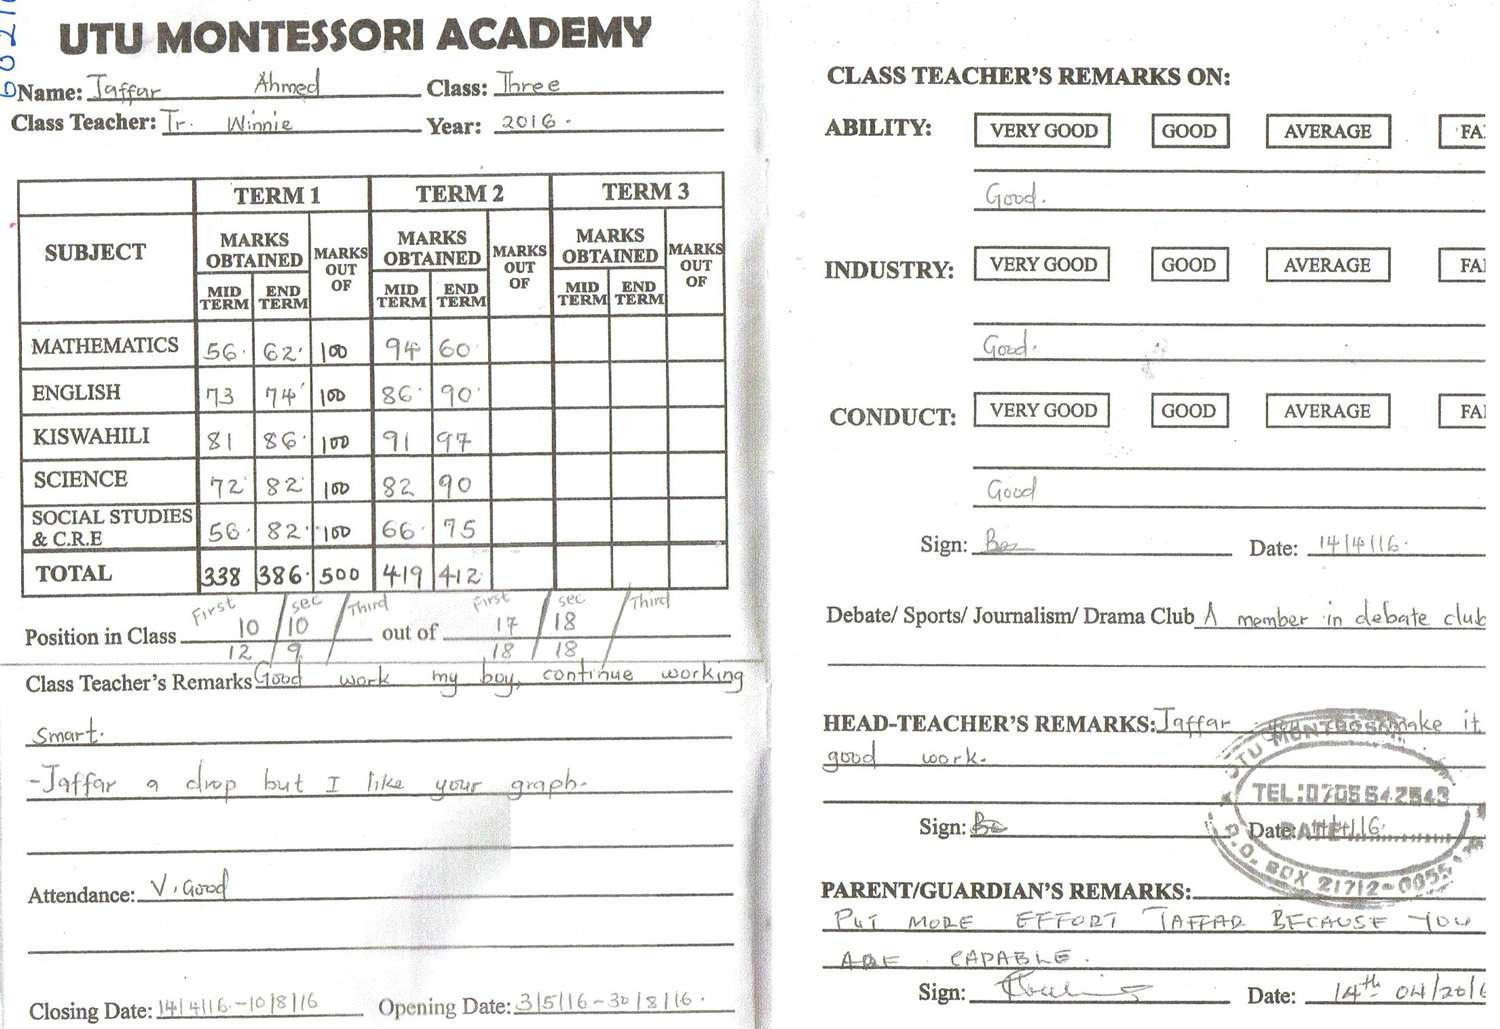 UTU MONTESSORI ACADEMY
Name: Jaffar Ahmed Class: Three
Class Teacher: Tr. Winnie Year: 2016.
SUBJECT TERM 1 TERM 2 TERM 3
MARKS OBTAINED MARKS OUT OF MARKS OBTAINED MARKS OUT OF MARKS OBTAINED MARKS OUT OF
MID TERM END TERM MID TERM END TERM MID TERM END TERM
MATHEMATICS 56. 62. 100 94 60.
ENGLISH 73 74 100 86. 90.
KISWAHILI 81 86. 100 91 97
SCIENCE 72 82 100 82 90
SOCIAL STUDIES & C.R.E 56. 82. 100 66. 75
TOTAL 338 386. 500 419 412.
First / sec / Third First / sec / Third
Position in Class 10 / 10 / out of 17 / 18 /
12 / 9 / 18 / 18 /
Class Teacher's Remarks Good work my boy, continue working
smart.
-Jaffar a drop but I like your graph.
Attendance: V. Good
Closing Date: 14/4/16.-10/8/16 Opening Date: 3/5/16-30/8/16.
CLASS TEACHER'S REMARKS ON:
ABILITY: VERY GOOD GOOD AVERAGE FA
Good.
INDUSTRY: VERY GOOD GOOD AVERAGE FA
Good.
CONDUCT: VERY GOOD GOOD AVERAGE FA
Good
Sign: Date: 14/4/16.
Debate/ Sports/ Journalism/ Drama Club A member in debate club
HEAD-TEACHER'S REMARKS: Jaffar you make it
good work.
UTU MONTESSORI
TEL:0705542543
Sign: Date: 14/4/16.
DATE
P.O. BOX 21712-0055
PARENT/GUARDIAN'S REMARKS:
PUT MORE EFFORT JAFFAR BECAUSE YOU
ARE CAPABLE.
Sign: Date: 14th 04/20/6